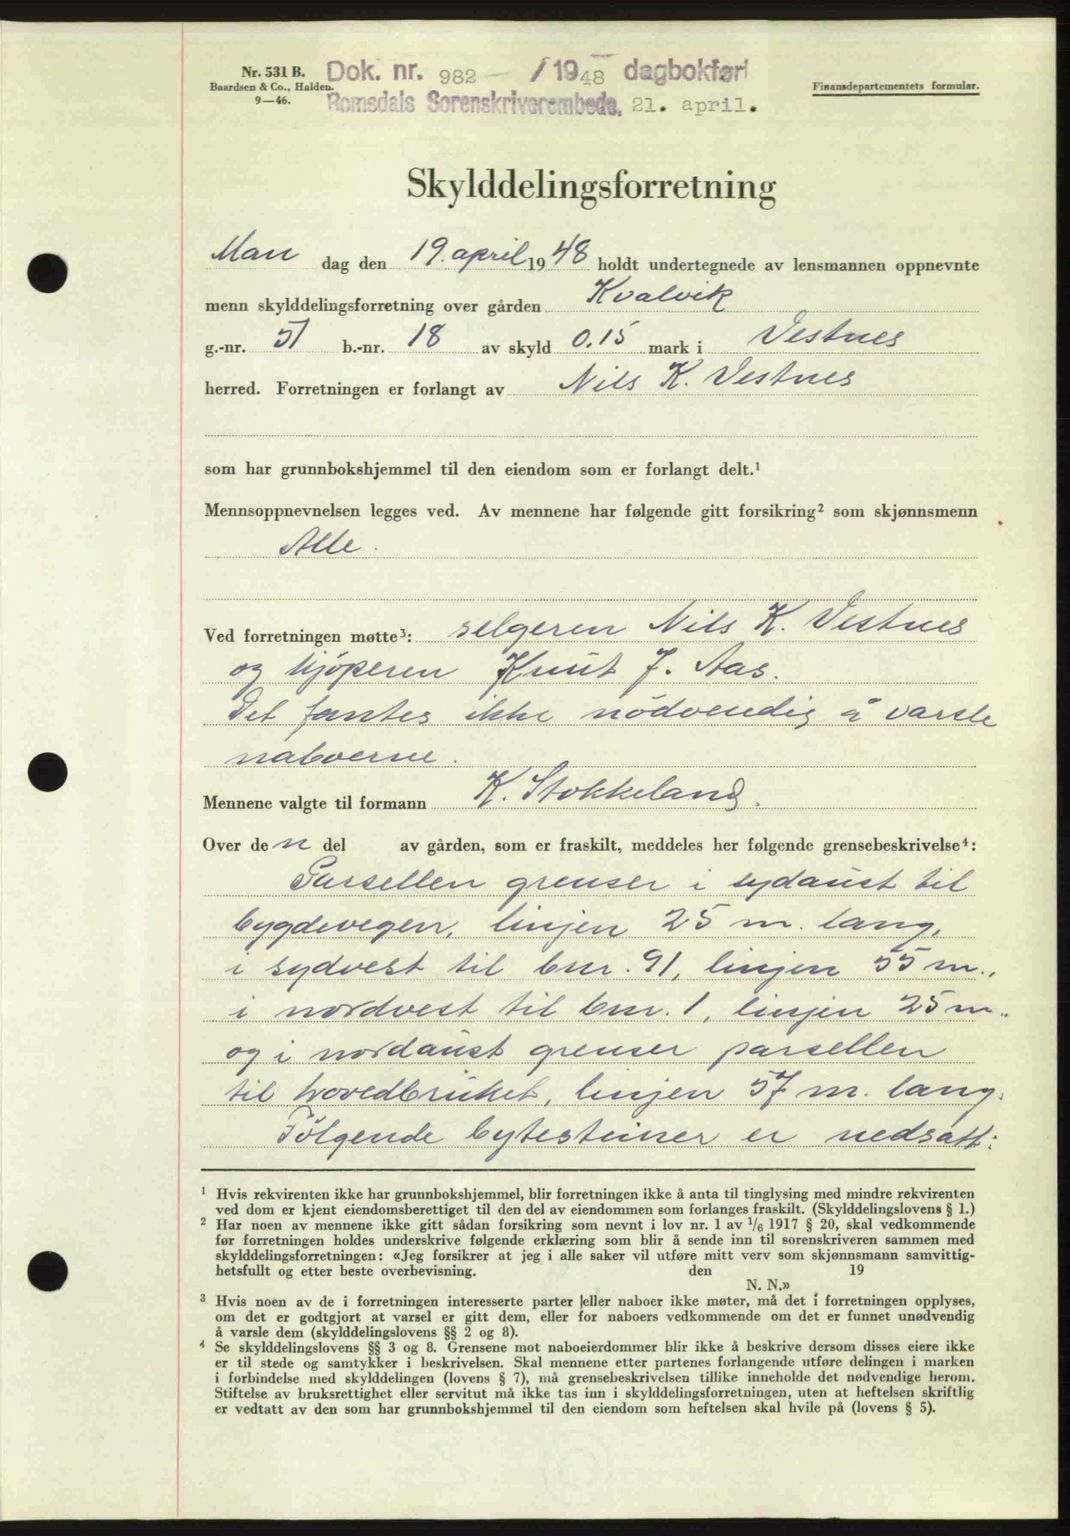 Nr. 531 B.
Baardsen & Co., Halden.
9—46.
Dok. nr. 982 — /1948 dagbokført
Romsdals Sorenskriverembede, 21. april.
Finansdepartementets formular.
Skylddelingsforretning
Man dag den 19. april 1948 holdt undertegnede av lensmannen oppnevnte
menn skylddelingsforretning over gården Kvalvik
g.-nr. 51 b.-nr. 18 av skyld 0.15 mark i Vestnes
herred. Forretningen er forlangt av Nils K. Vestnes
som har grunnbokshjemmel til den eiendom som er forlangt delt.¹
Mennsoppnevnelsen legges ved. Av mennene har følgende gitt forsikring² som skjønnsmenn
Alle.
Ved forretningen møtte³: selgeren Nils K. Vestnes
og kjöperen Knut J. Aas.
Det fantes ikke nödvendig å varsle
naboerne.
Mennene valgte til formann K. Stokkeland.
Over den del av gården, som er fraskilt, meddeles her følgende grensebeskrivelse⁴:
Parsellen grenser i sydaust til
bygdevegen, linjen 25 m. lang,
i sydvest til bnr. 91, linjen 55 m.,
i nordvest til bnr. 1, linjen 25 m.,
og i nordaust grenser parsellen
til hovedbruket, linjen 57 m. lang.
Fölgende bytesteiner er nedsatt:
¹ Hvis rekvirenten ikke har grunnbokshjemmel, blir forretningen ikke å anta til tinglysing med mindre rekvirenten
ved dom er kjent eiendomsberettiget til den del av eiendommen som forlanges fraskilt. (Skylddelingslovens § 1.)
² Har noen av mennene ikke gitt sådan forsikring som nevnt i lov nr. 1 av 1/6 1917 § 20, skal vedkommende
før forretningen holdes underskrive følgende erklæring som blir å sende inn til sorenskriveren sammen med
skylddelingsforretningen: «Jeg forsikrer at jeg i alle saker vil utføre mitt verv som skjønnsmann samvittig-
hetsfullt og etter beste overbevisning. den 19
N. N.»
³ Hvis noen av de i forretningen interesserte parter eller naboer ikke møter, må det i forretningen opplyses,
om det er godtgjort at varsel er gitt dem, eller for naboers vedkommende om det er funnet unødvendig
å varsle dem (skylddelingslovens §§ 2 og 8).
⁴ Se skylddelingslovens §§ 3 og 8. Grensene mot naboeierdommer blir ikke å beskrive dersom disses eiere ikke
er til stede og samtykker i beskrivelsen. Skal mennene etter partenes forlangende utføre delingen i marken
i forbindelse med skylddelingen (lovens § 7), må grensebeskrivelsen tillike inneholde det nødvendige herom.
Stiftelse av bruksrettighet eller servitut må ikke tas inn i skylddelingsforretningen, uten at heftelsen skriftlig
er vedtatt av den som har grunnbokshjemmel til den eiendom som heftelsen skal hvile på (lovens § 5).